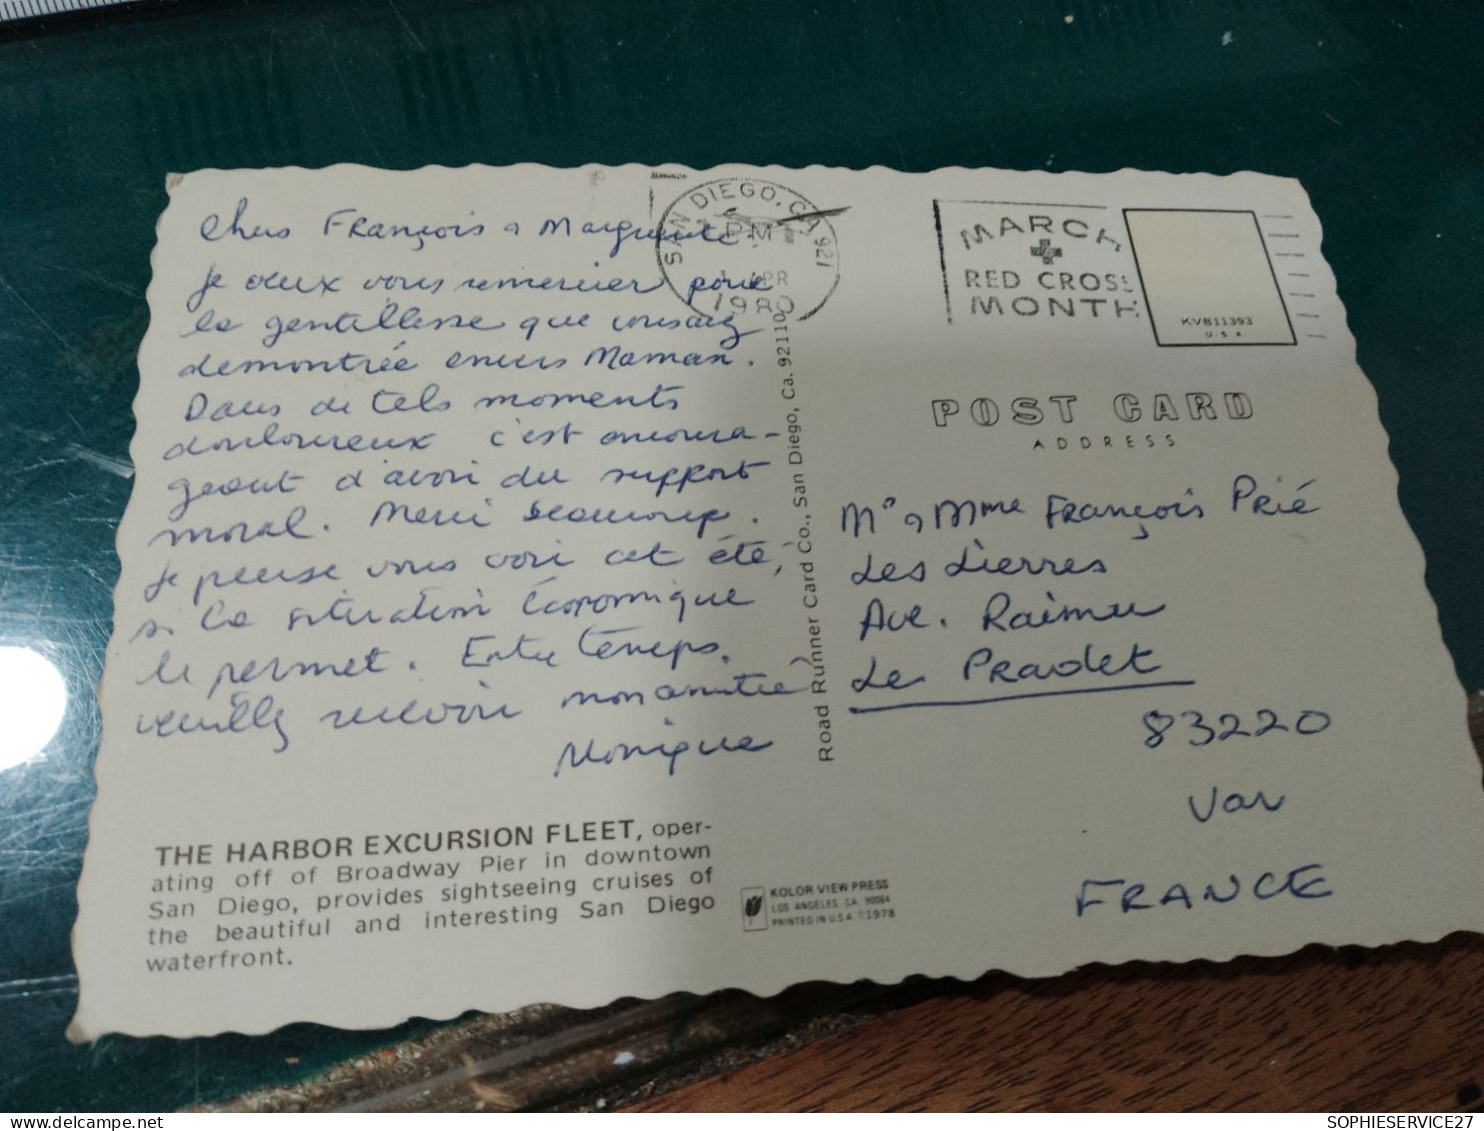 Chers François & Marguerite
Je veux vous remercier pour
la gentillesse que vous avez
démontrée envers Maman.
Dans de tels moments
douloureux c'est encoura-
geant d'avoir du support
moral. Merci beaucoup.
Je pense vous voir cet été,
si la situation économique
le permet. Entre temps,
veuillez recevoir mon amitié,
Monique
THE HARBOR EXCURSION FLEET, oper-
ating off of Broadway Pier in downtown
San Diego, provides sightseeing cruises of
the beautiful and interesting San Diego
waterfront.
Road Runner Card Co., San Diego, Ca. 92110
KOLOR VIEW PRESS
LOS ANGELES, CA. 90064
PRINTED IN U.S.A ©1978
SAN DIEGO, CA 921
PM
1 APR
1980
MARCH
RED CROSS
MONTH
KVB11393
U.S.A.
POST CARD
ADDRESS
Mr & Mme François Prié
Les Lierres
Ave. Raimu
Le Pradet
83220
Var
FRANCE
SOPHIESERVICE27